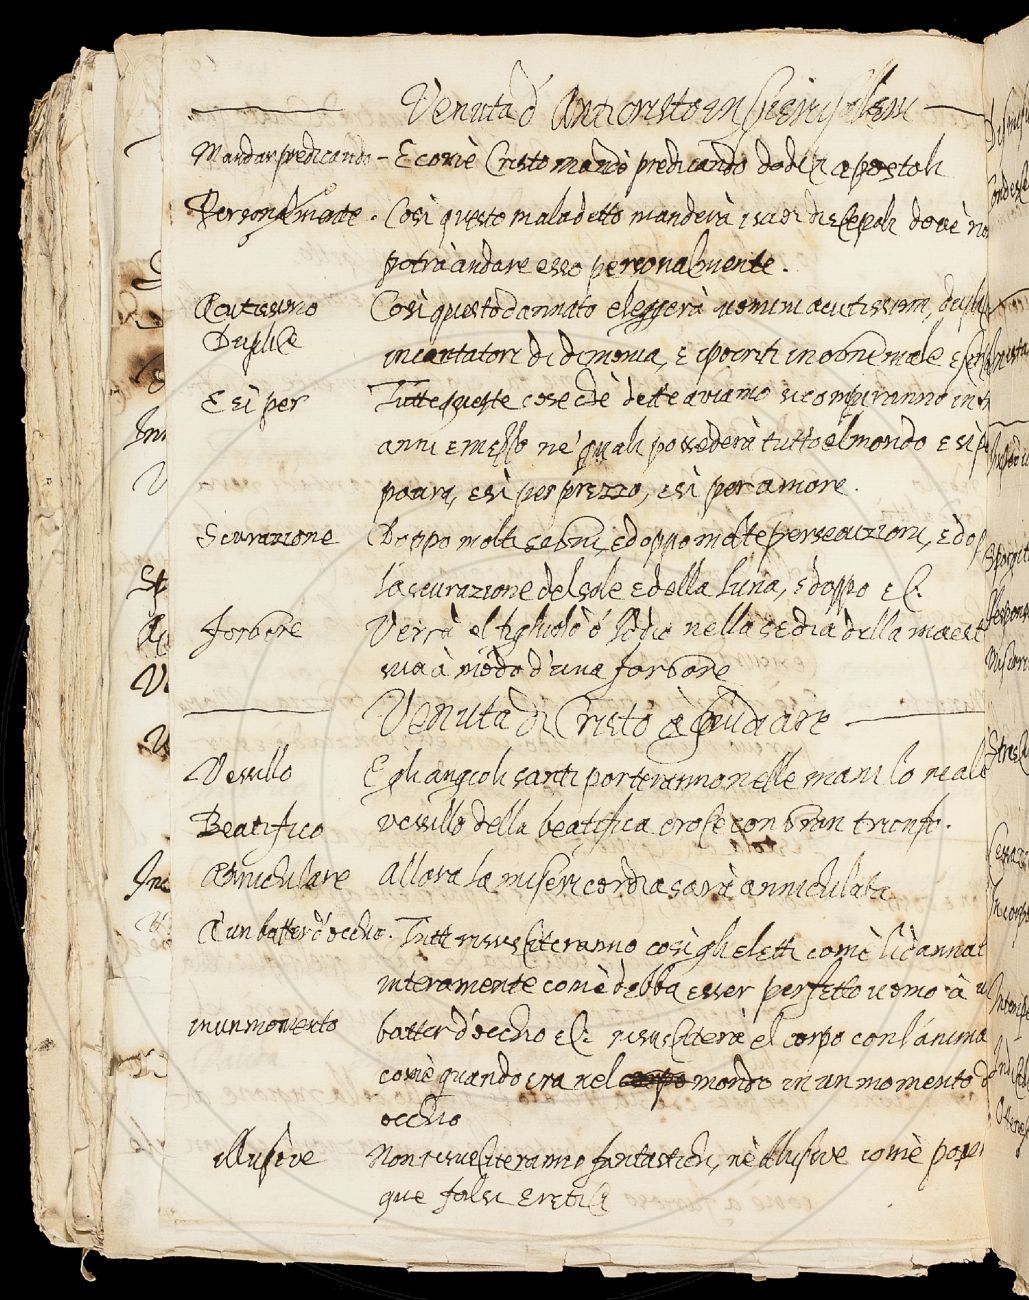 Venuta d' Anticristo in Gierusalem
Mandar predicando - E comè Cristo mandò predicando dodici apostoli
Personalmente . Così questo maladetto manderà i suoi discepoli dovè non
potrà andare esso personalmente.
Acutissimo Così questo dannato eleggerà uomini acutissimi, duplici
Duplice
incantatori di dimonia, e ipocriti in ogne male
E sì per Tutte queste cose chè dette aviamo si compiranno in tre
anni e mezzo ne' quali possederà tutto el mondo e sì per
paura, e sì per prezzo, e sì per amore.
Scurazione Doppo molti segni, e doppo molte persecuzioni, e doppo
la scurazione del sole e della luna, e doppo ec.
Forgore Verrà el figliuolo d' Iddio nella sedia della maestà
sua à mòdo d'una forgore
Venuta di Cristo à Giudicare
Vessillo E gli angioli santi porteranno nelle mani lo reale
Beatifico vessillo della beatifica croce con gran trionfo.
Annichulare Allora la misericordia sarà annichulata
A un batter d'occhio. Tutti risusciteranno così gli eletti comè li dannati
interamente comè debba esser perfetto uomo à un
in un momento batter d'occhio ec. risusciterà el corpo con l'anima
comè quando era nel corpo mondo in un momento d'
occhio
illusive Non risusciteranno fantastichi, nè illusive comè
que falsi eretici